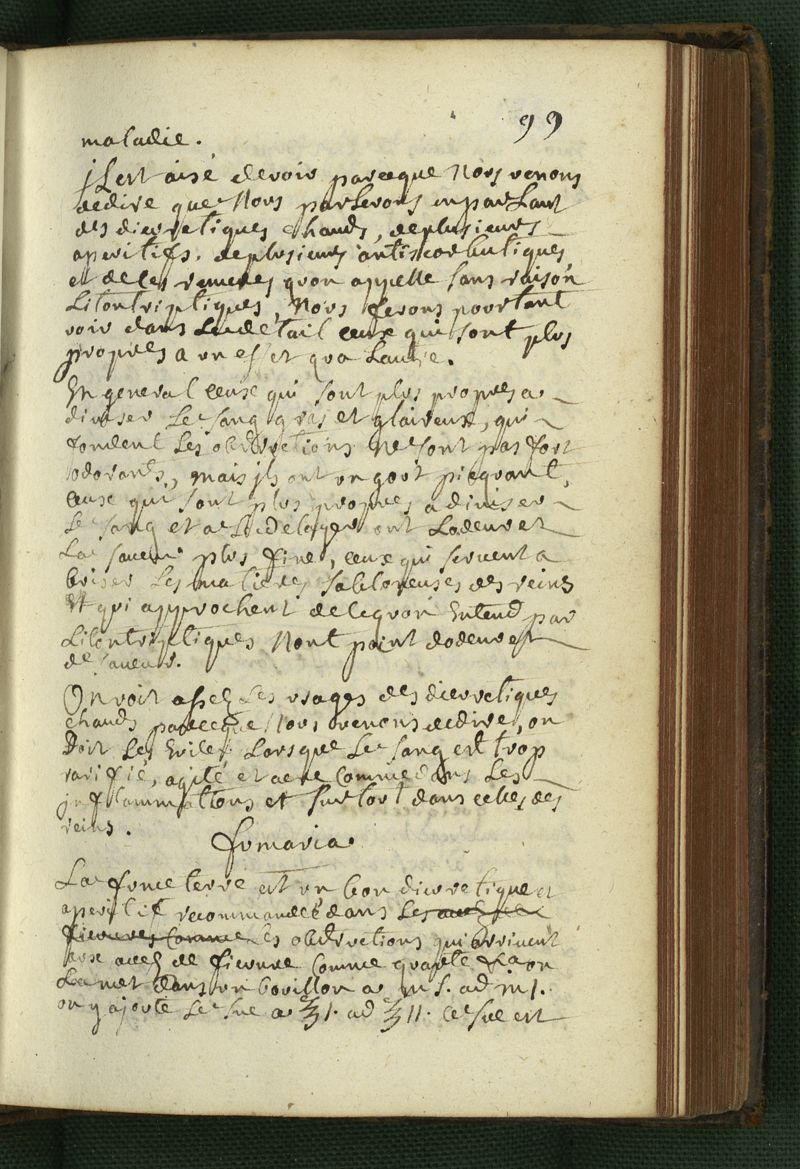 99
maladie.
jl est aisé de voir parceque Nous venons
de dire que Nous parlerons en parlant
des diuretiques chauds, de plusieurs
aperitifs, de plusieurs antiscorbutiques
et de ces remedes quon appelle sans raison
Litontriptiques, Nous ferons pourtant
voir dans Le detail ceux qui sont plus
propres a un effet qua Lautre.
En general ceux qui sont plus propres a
diviser Le sang gras et glaireux, qui
fondent Les obstructions Ne sont pas fort
odorants, mais jls ont un gout picquant,
ceux qui sont plus propres a diviser
Le sang et a Le delayer ont Lodeur et
La saveur plus fine, ceux qui servent a
briser Les matieres sabloneuses des reins
Et qui approchent de ce quon Entend par
Litontriptiques Nont point dodeur et
de saveur.
On voit assez Les usages des diuretiques
chauds parceque Nous venons de dire, on
Doit Les Eviter Lorsque Le sang est trop
rarifié, agité et acre comme dans Les
jnflammations et surtout dans celles des
reins.
fumaria
La fume terre est un bon diuretique et
aperitif recommandée dans Les
fievres comme Les obstructions qui arrivent
aux de fievre comme quarte &a on
La met dans un bouillon a m s. ad m j.
on y ajoute Le suc a ℥ j. ad ℥ ij. ce suc est